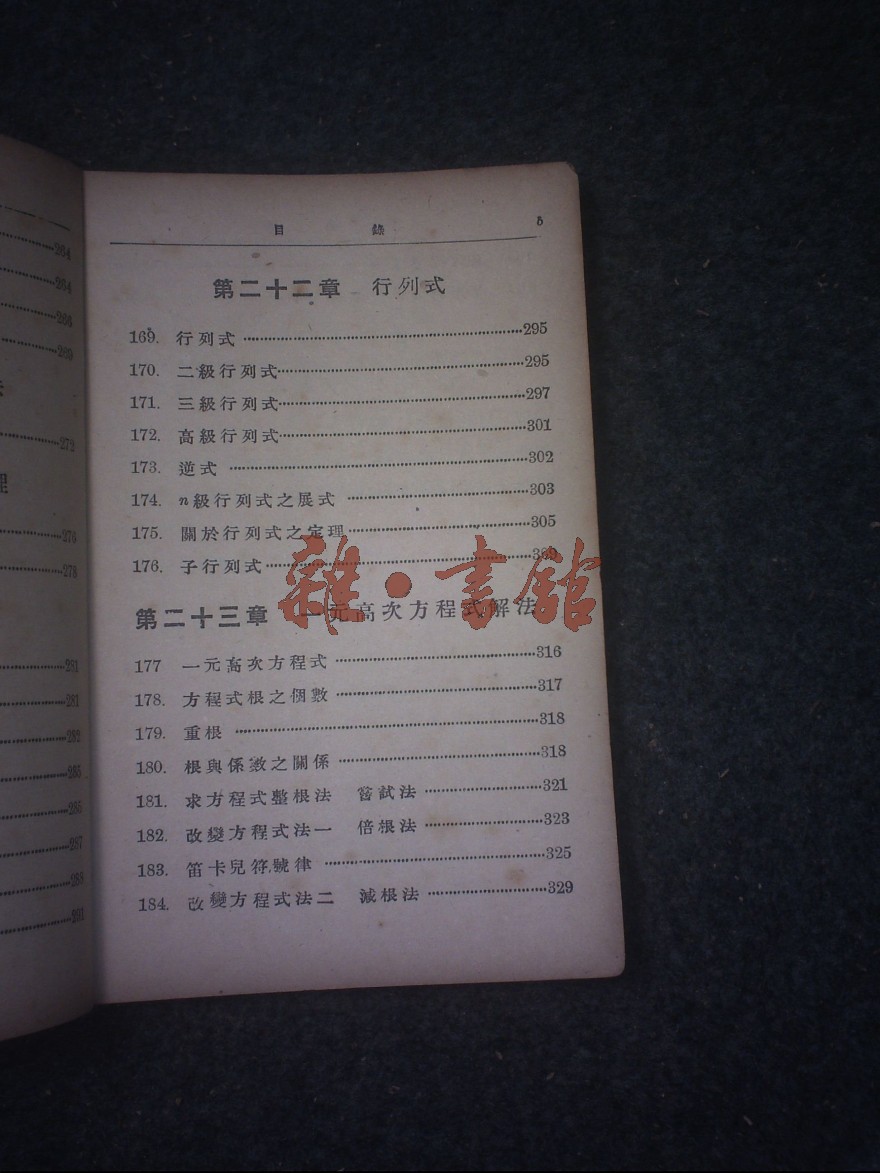 264
264
266
269
272
276
278
281
281
282
285
285
287
288
291
目 錄 5
第二十二章 行列式
169. 行列式 295
170. 二級行列式 295
171. 三級行列式 297
172. 高級行列式 301
173. 逆式 302
174. n級行列式之展式 303
175. 關於行列式之定理 305
176. 子行列式 309
雜·書館
第二十三章 一元高次方程式解法
177 一元高次方程式 316
178. 方程式根之個數 317
179. 重根 318
180. 根與係數之關係 318
181. 求方程式整根法 嘗試法 321
182. 改變方程式法一 倍根法 323
183. 笛卡兒符號律 325
184. 改變方程式法二 減根法 329